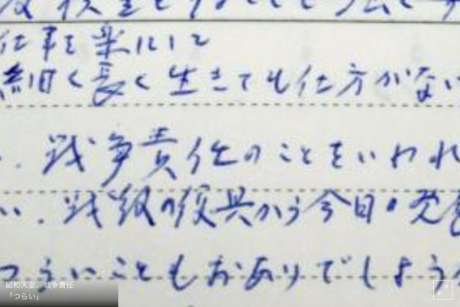 仕事を楽にして
細く長く生きても仕方がない
戦争責任のことをいわれ
い。戦後の復興から今日の発
つらいこともおありでしょう
昭和天皇 戦争責任
「つらい」